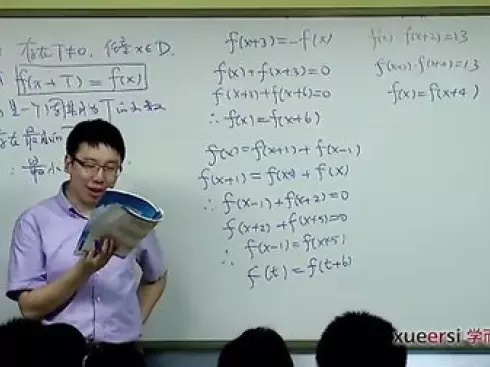 存在 T≠0, 任意 x∈D.
f(x+T) = f(x)
f(x+3) = -f(x)
f(x)+f(x+3)=0
f(x+3)+f(x+6)=0
∴ f(x)=f(x+6)
f(x)=f(x+1)+f(x-1)
f(x+1)=f(x+2)+f(x)
∴ f(x-1)+f(x+2)=0
f(x+2)+f(x+5)=0
∴ f(x-1)=f(x+5)
f(t)=f(t+6)
f(x)·f(x+2)=13
f(x+2)·f(x+4)=13
f(x)=f(x+4)
xueersi 学而